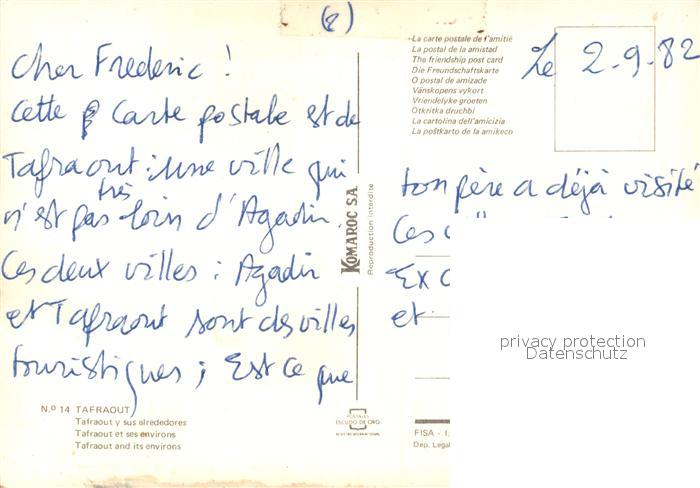 (8)
Cher Frederic !
Cette Carte postale est de
Tafraout : une ville qui
n'est pas très loin d'Agadir.
Ces deux villes : Agadir
et Tafraout sont des villes
touristiques ; Est ce que
Nº 14 TAFRAOUT
Tafraout y sus alrededores
Tafraout et ses environs
Tafraout and its environs
KOMAROC SA
Reproduction interdite
POSTALES
ESCUDO DE ORO
La carte postale de l'amitié
La postal de la amistad
The friendship post card
Die Freundschaftskarte
O postal de amizade
Vänskopens vykort
Vriendelyke groeten
Otkritka druchbi
La cartolina dell'amicizia
La poŝtkarto de la amikeco
Le 2-9-82
ton père a déjà visité
Ces
et
FISA - I.
Dep. Legal
privacy protection
Datenschutz